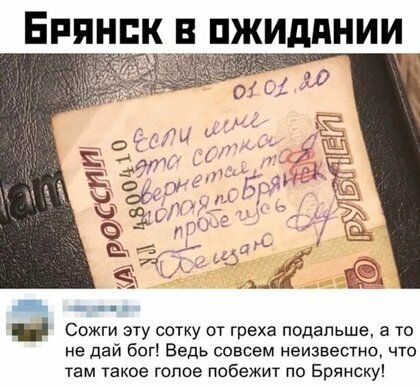 БРЯНСК В ОЖИДАНИИ
01.01.20
Если мне
эта сотка
вернется, то я
голая по Брянску
пробегусь
Обещаю
А РОССИИ
УЛ 4800410
РУБЛЕЙ
am
Сожги эту сотку от греха подальше, а то
не дай бог! Ведь совсем неизвестно, что
там такое голое побежит по Брянску!